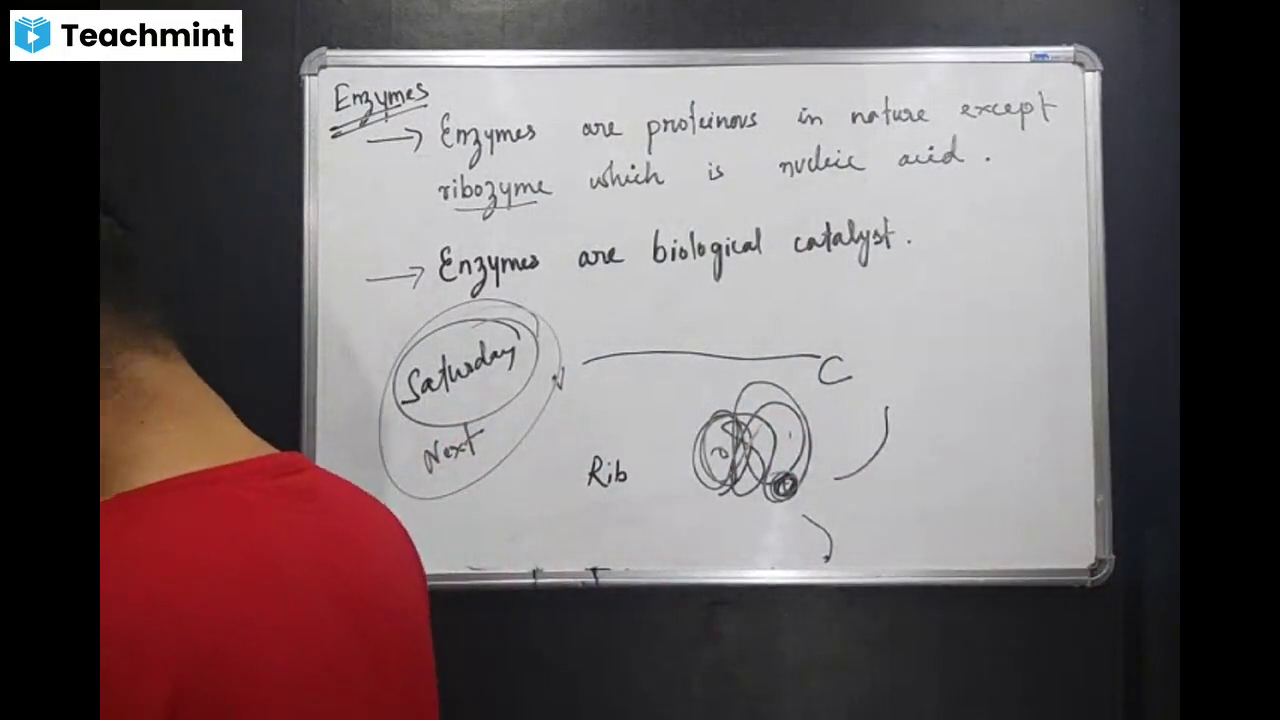 Teachmint
Enzymes
→ Enzymes are proteinous in nature except
ribozyme which is nucleic acid.
→ Enzymes are biological catalyst.
Saturday
Next
C
Rib